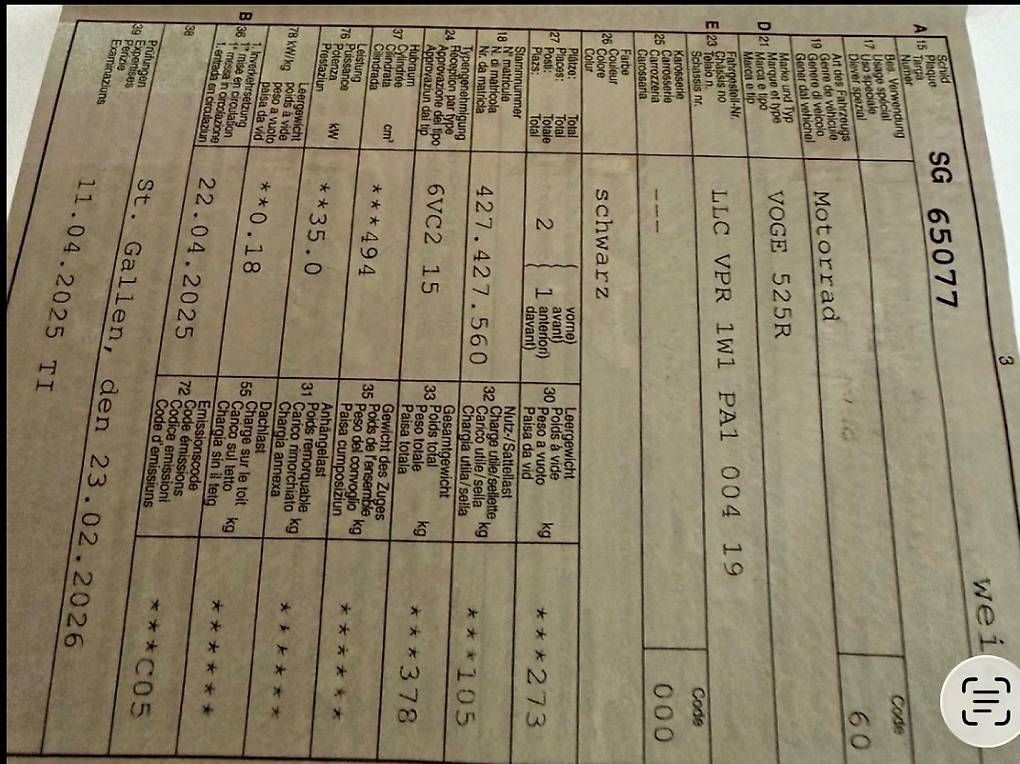 3
wei
A 15 Schild
Plaque
Targa
Numer
SG 65077
17 Bes. Verwendung
Usage spécial
Uso speciale
Diever spezial
Code
60
19 Art des Fahrzeugs
Genre de véhicule
Genere di veicolo
Gener dal vehichel
Motorrad
D 21 Marke und Typ
Marque et type
Marca e tipo
Marca e tip
VOGE 525R
E 23 Fahrgestell-Nr.
Châssis no
Telaio n.
Schassis nr.
LLC VPR 1W1 PA1 004 19
25 Karosserie
Carrosserie
Carrozzeria
Carossaria
---
Code
000
26 Farbe
Couleur
Colore
Colur
schwarz
27 Plätze: Total
Places: Total
Posti: Totale
Plazs: Total
2
1
vorne)
avant)
anteriori)
davant)
30 Leergewicht
Poids à vide
Peso a vuoto
Paisa da vid
kg
***273
18 Stammnummer
N° matricule
N. di matricola
Nr. da matricla
427.427.560
32 Nutz-/Sattellast
Charge utile/sellette
Carico utile/sella
Chargia utila/sella
kg
***105
24 Typengenehmigung
Réception par type
Approvazione del tipo
Approvaziun dal tip
6VC2 15
33 Gesamtgewicht
Poids total
Peso totale
Paisa totala
kg
***378
37 Hubraum
Cylindrée
Cilindrata
Cilindrada
cm³
***494
35 Gewicht des Zuges
Poids de l'ensemble
Peso del convoglio
Paisa cumposiziun
kg
******
76 Leistung
Puissance
Potenza
Prestaziun
kW
**35.0
31 Anhängelast
Poids remorquable
Carico rimorchiato
Chargia annexa
kg
******
78 kW/kg
Leergewicht
poids à vide
peso a vuoto
paisa da vid
**0.18
55 Dachlast
Charge sur le toit
Carico sul tetto
Chargia sin il tetg
kg
******
B 36 1. Inverkehrsetzung
1re mise en circulation
1a messa in circolazione
1. entrada en circulaziun
22.04.2025
72 Emissionscode
Code émissions
Codice emissioni
Code d'emissiuns
***C05
38
St. Gallen, den 23.02.2026
39 Prüfungen
Expertises
Perizie
Examinaziuns
11.04.2025 TI